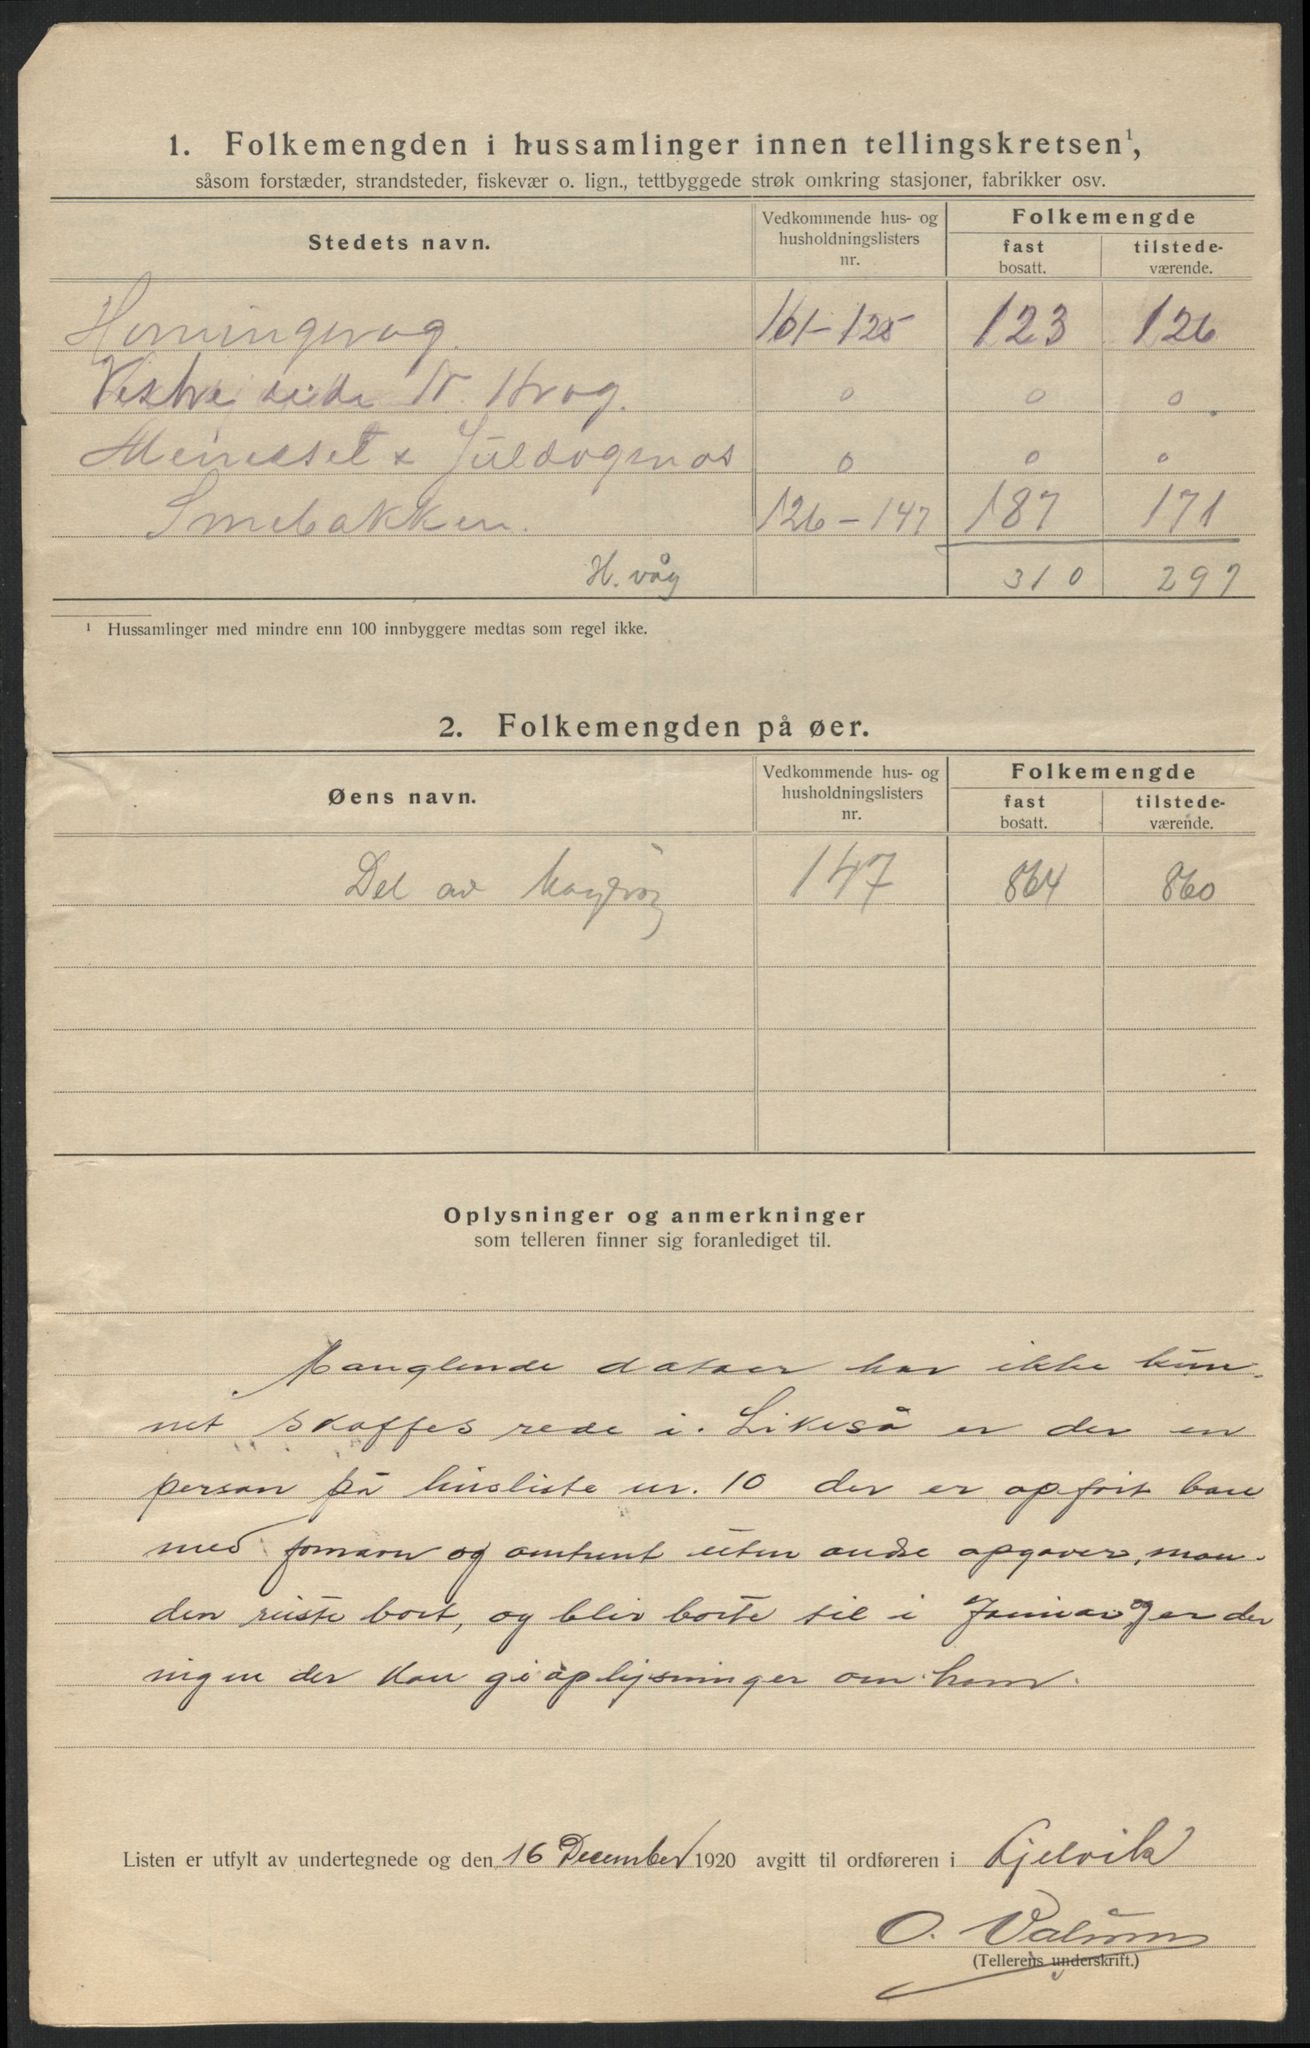 1. Folkemengden i hussamlinger innen tellingskretsen¹,
såsom forstæder, strandsteder, fiskevær o. lign., tettbyggede strøk omkring stasjoner, fabrikker osv.
Stedets navn. Vedkommende hus- og husholdningslisters nr. Folkemengde fast bosatt. tilstede-værende.
Honningsvåg. 101-125 123 126
Vestre side N. Hvog. o o o
o o o
Smebakken. 126-147 187 171
H. våg 310 297
¹ Hussamlinger med mindre enn 100 innbyggere medtas som regel ikke.
2. Folkemengden på øer.
Øens navn. Vedkommende hus- og husholdningslisters nr. Folkemengde fast bosatt. tilstede-værende.
Del av Magerøy 147 864 860
Oplysninger og anmerkninger
som telleren finner sig foranlediget til.
Manglende dataer har ikke kun-
net skaffes rede i. Likeså er der en
person på husliste nr. 10 der er opført bare
med fornavn og omtrent uten andre opgaver, man-
den reiste bort, og blir borte til i Januar og er der
ingen der kan gi oplysninger om ham.
Listen er utfylt av undertegnede og den 16 December 1920 avgitt til ordføreren i Kjelvik
O. Valum
(Tellerens underskrift.)